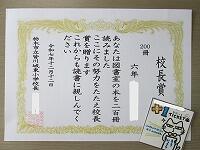 200冊
校長賞
六年
あなたは図書室の本を二百冊
読みました
ここにその努力をたたえ校長
賞を贈ります
これからも読書に親しんでく
ださい
令和七年十二月十一日
栃木市立皆川城東小学校長